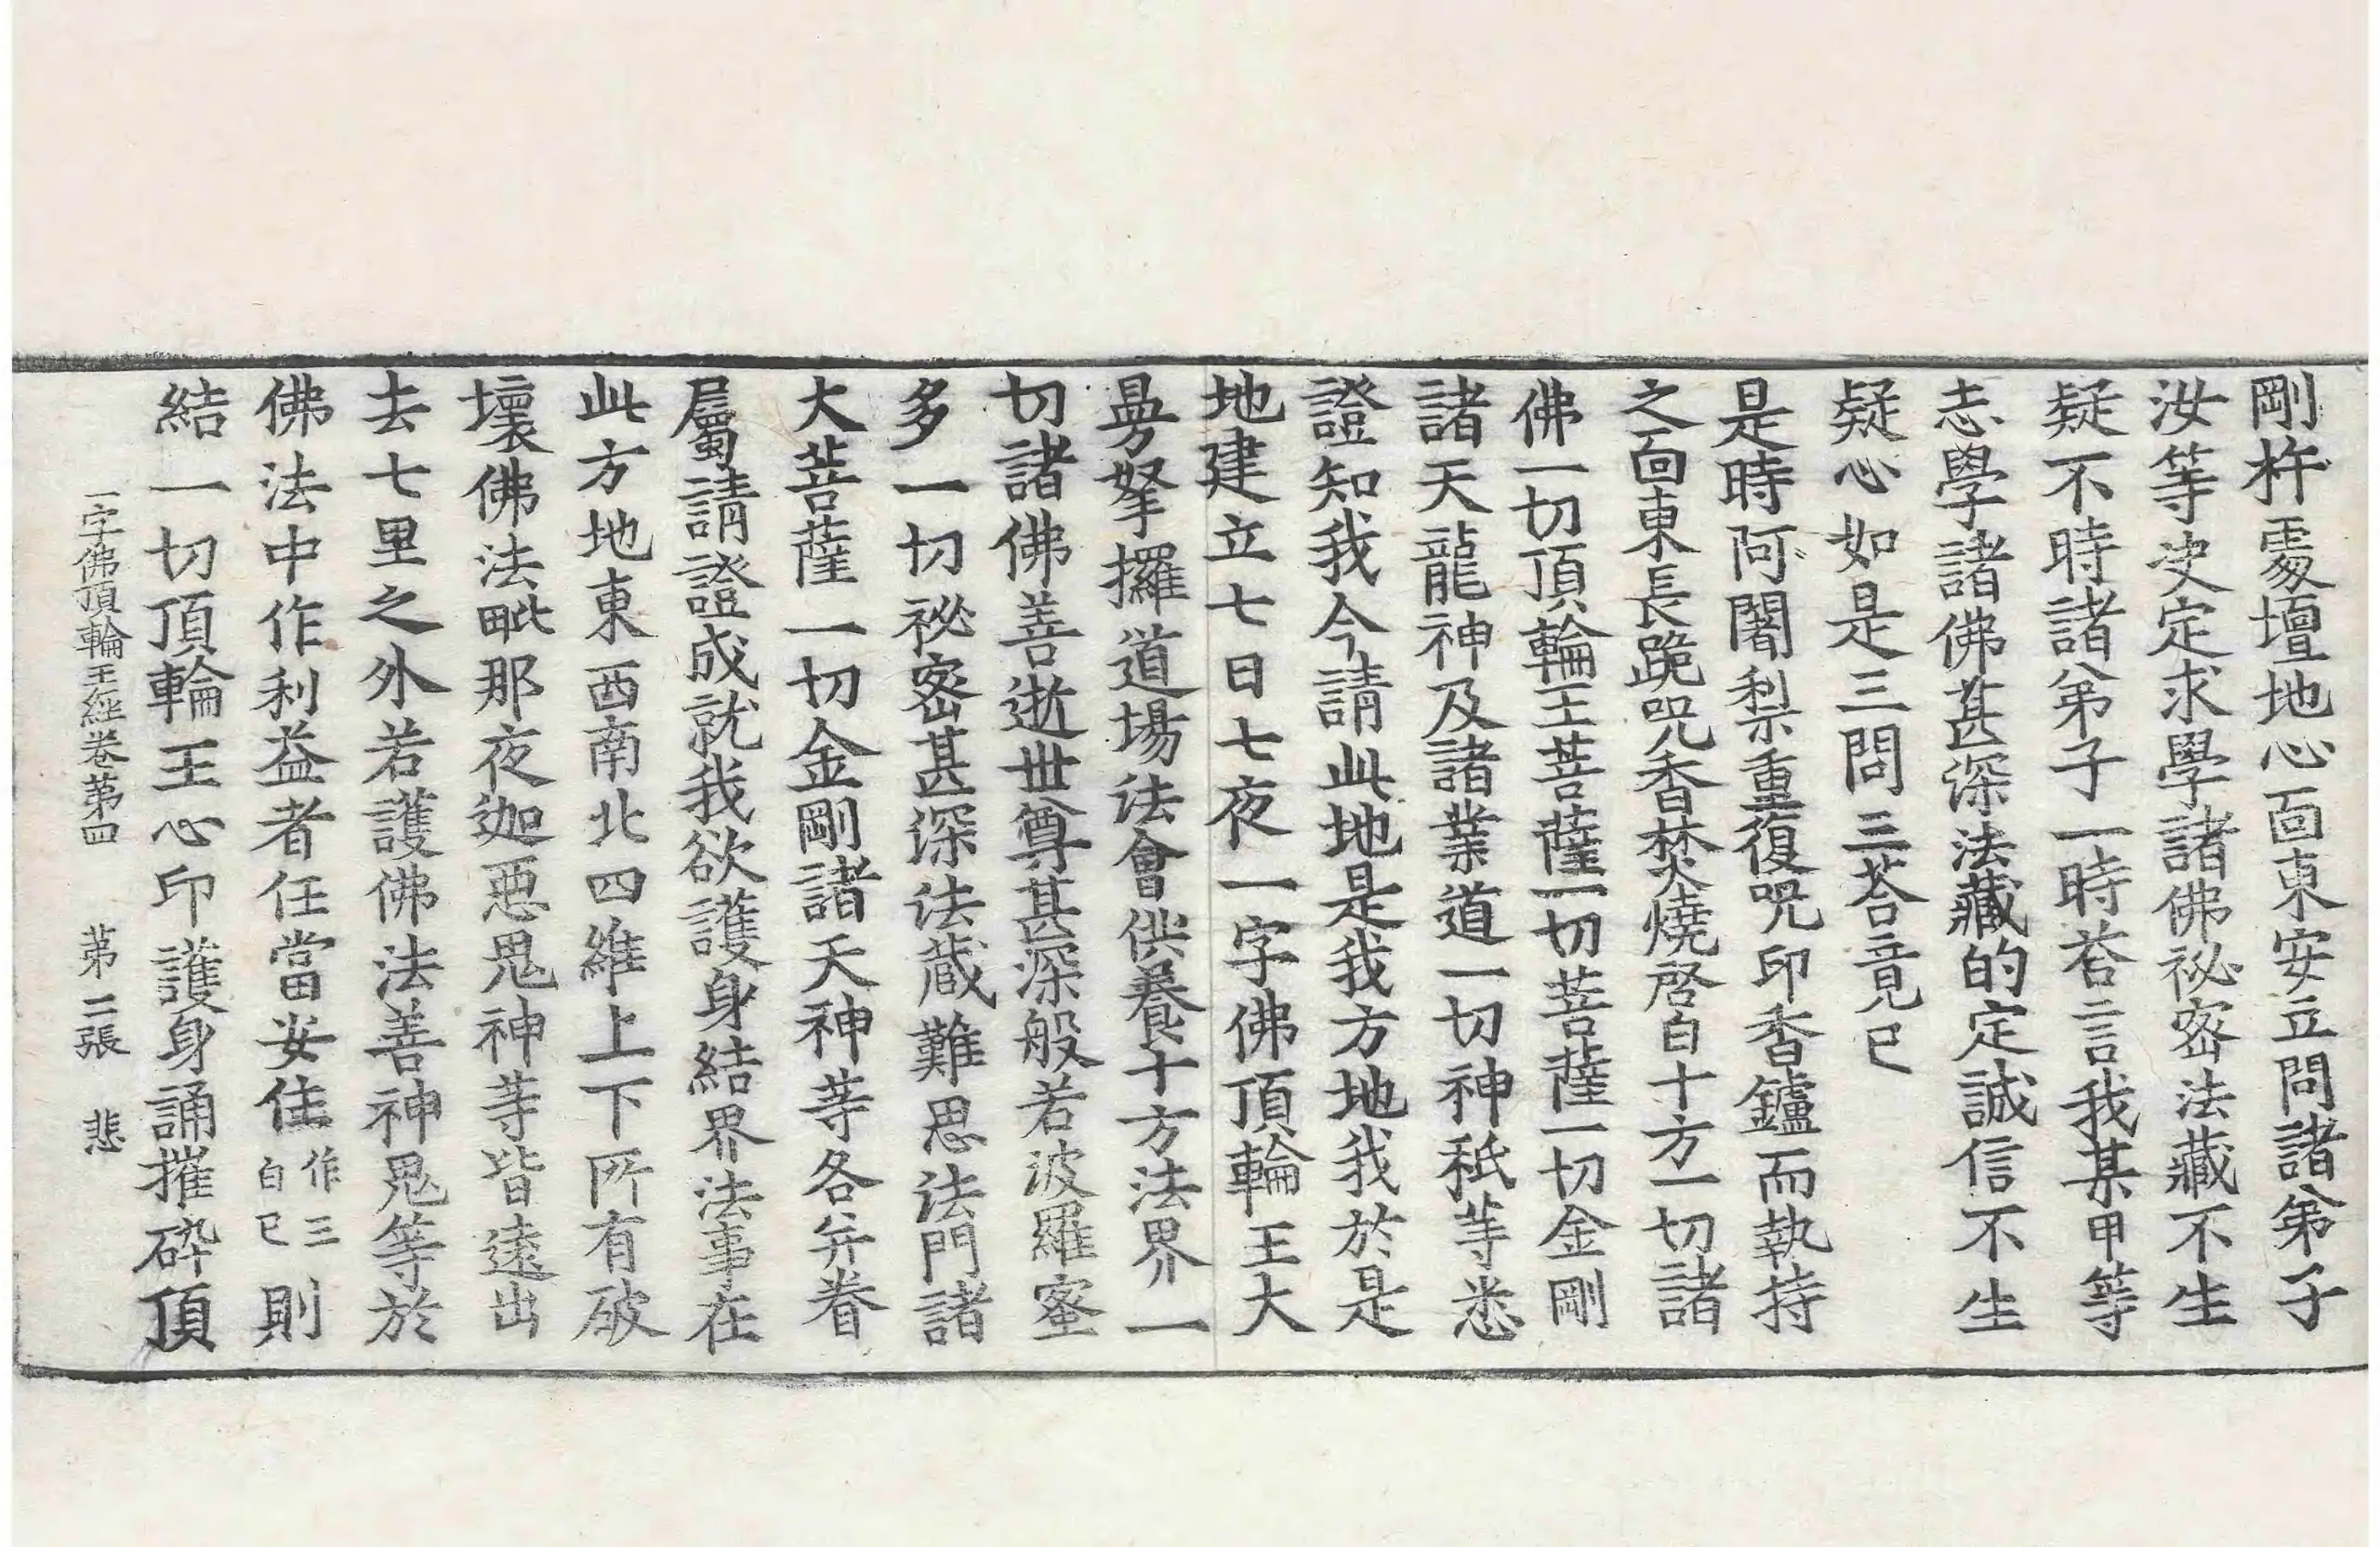 剛杵處壇地心面東安立問諸弟子
汝等决定求學諸佛祕密法藏不生
疑不時諸弟子一時荅言我某甲等
志學諸佛甚深法藏的定誠信不生
疑心如是三問三荅竟已
是時阿闍梨重復呪印香鑪而執持
之面東長跪呪香焚燒啓白十方一切諸
佛一切頂輪王菩薩一切菩薩一切金剛
諸天龍神及諸業道一切神祇等悉
證知我今請此地是我方地我於是
地建立七日七夜一字佛頂輪王大
曼拏攞道場法會供養十方法界一
切諸佛善逝世尊甚深般若波羅蜜
多一切祕密甚深法蔵難思法門諸
大菩薩一切金剛諸天神等各并眷
屬請證成就我欲護身結界法事在
此方地東西南北四維上下所有破
壞佛法毗那夜迦惡鬼神等皆遠出
去七里之外若護佛法善神鬼等於
佛法中作利益者任當安住作三白已則
結一切頂輪王心印護身誦摧碎頂
一字佛頂輪王經卷第四　第二張　悲